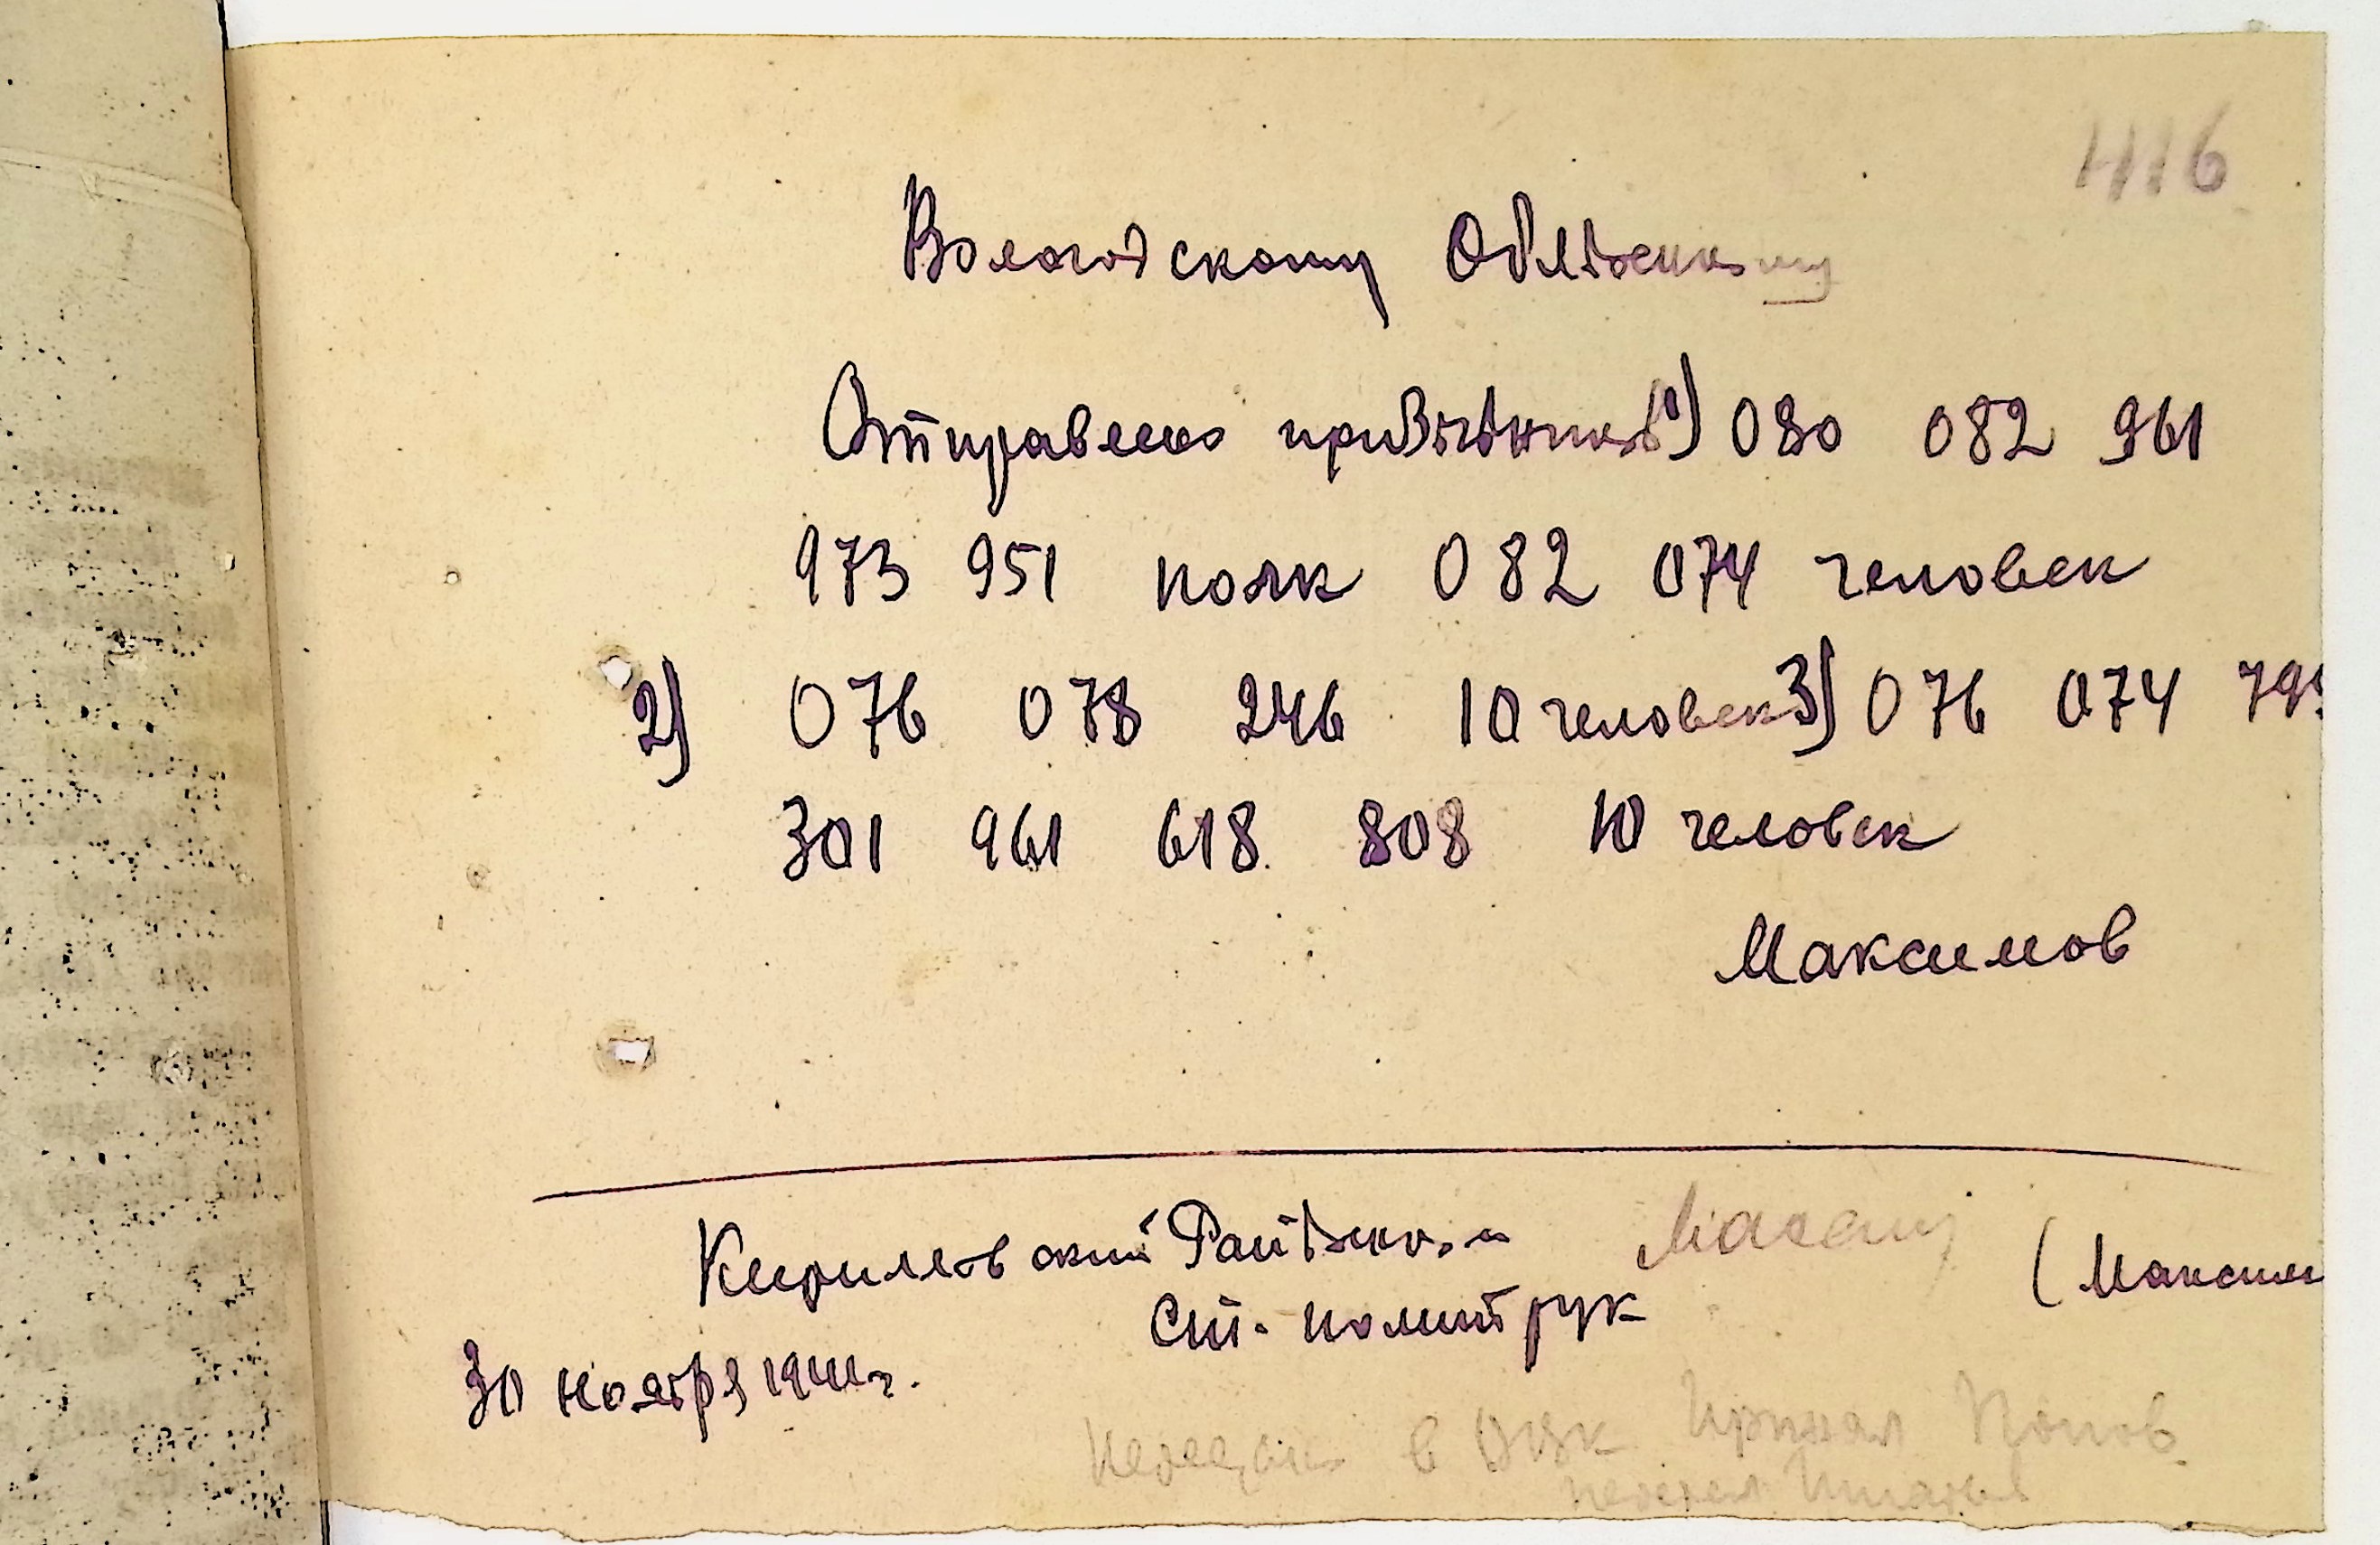 416
Вологодскому Облвоенкому
Отправлено призывников 1) 080 082 961
973 951 полк 082 074 человек
2) 076 078 246 10 человек 3) 076 074 79
301 961 618 808 10 человек
Максимов
Кирилловский Райвоенком
Ст. политрук (Максим
30 ноября 1941 г.
в Принял Попов